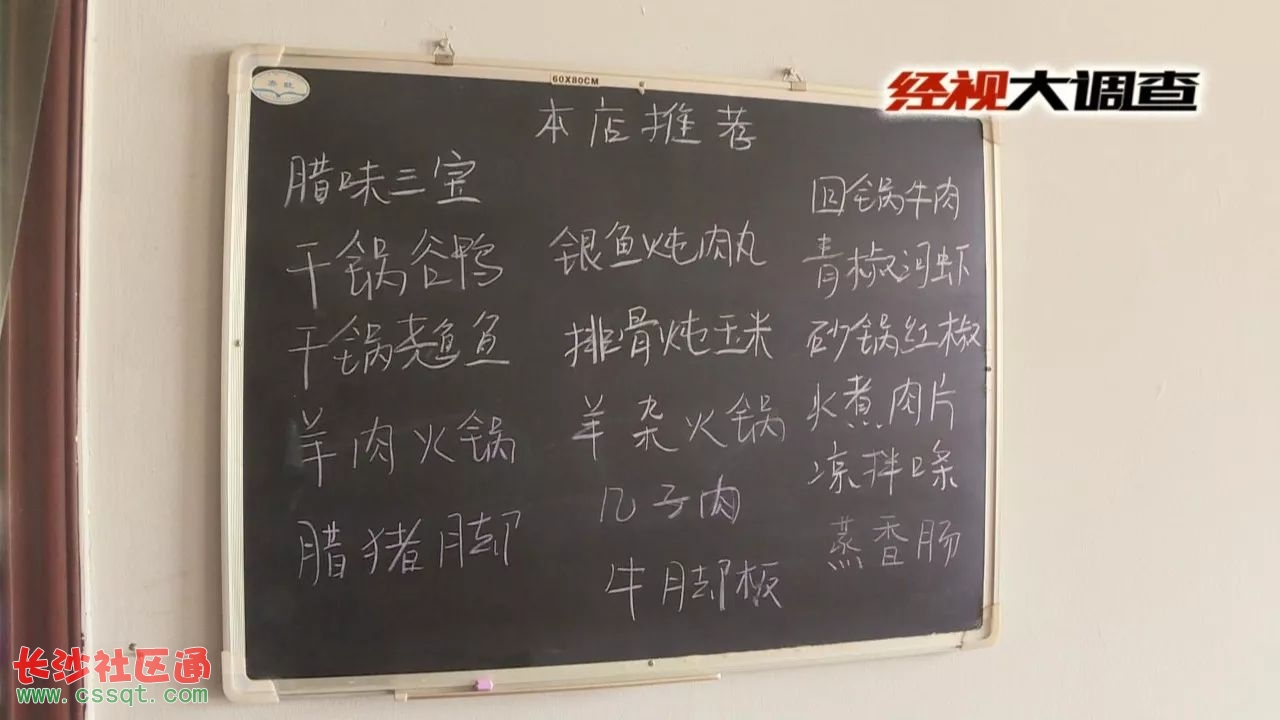 60X80CM
经视大调查
本店推荐
腊味三宝
干锅谷鸭
干锅尧鱼鱼
羊肉火锅
腊猪脚
银鱼炖肉丸
排骨炖玉米
羊杂火锅
几子肉
牛脚板
回锅牛肉
青椒河虾
砂锅红椒
水煮肉片
凉拌口条
蒸香肠
长沙社区通
www.cssqt.com